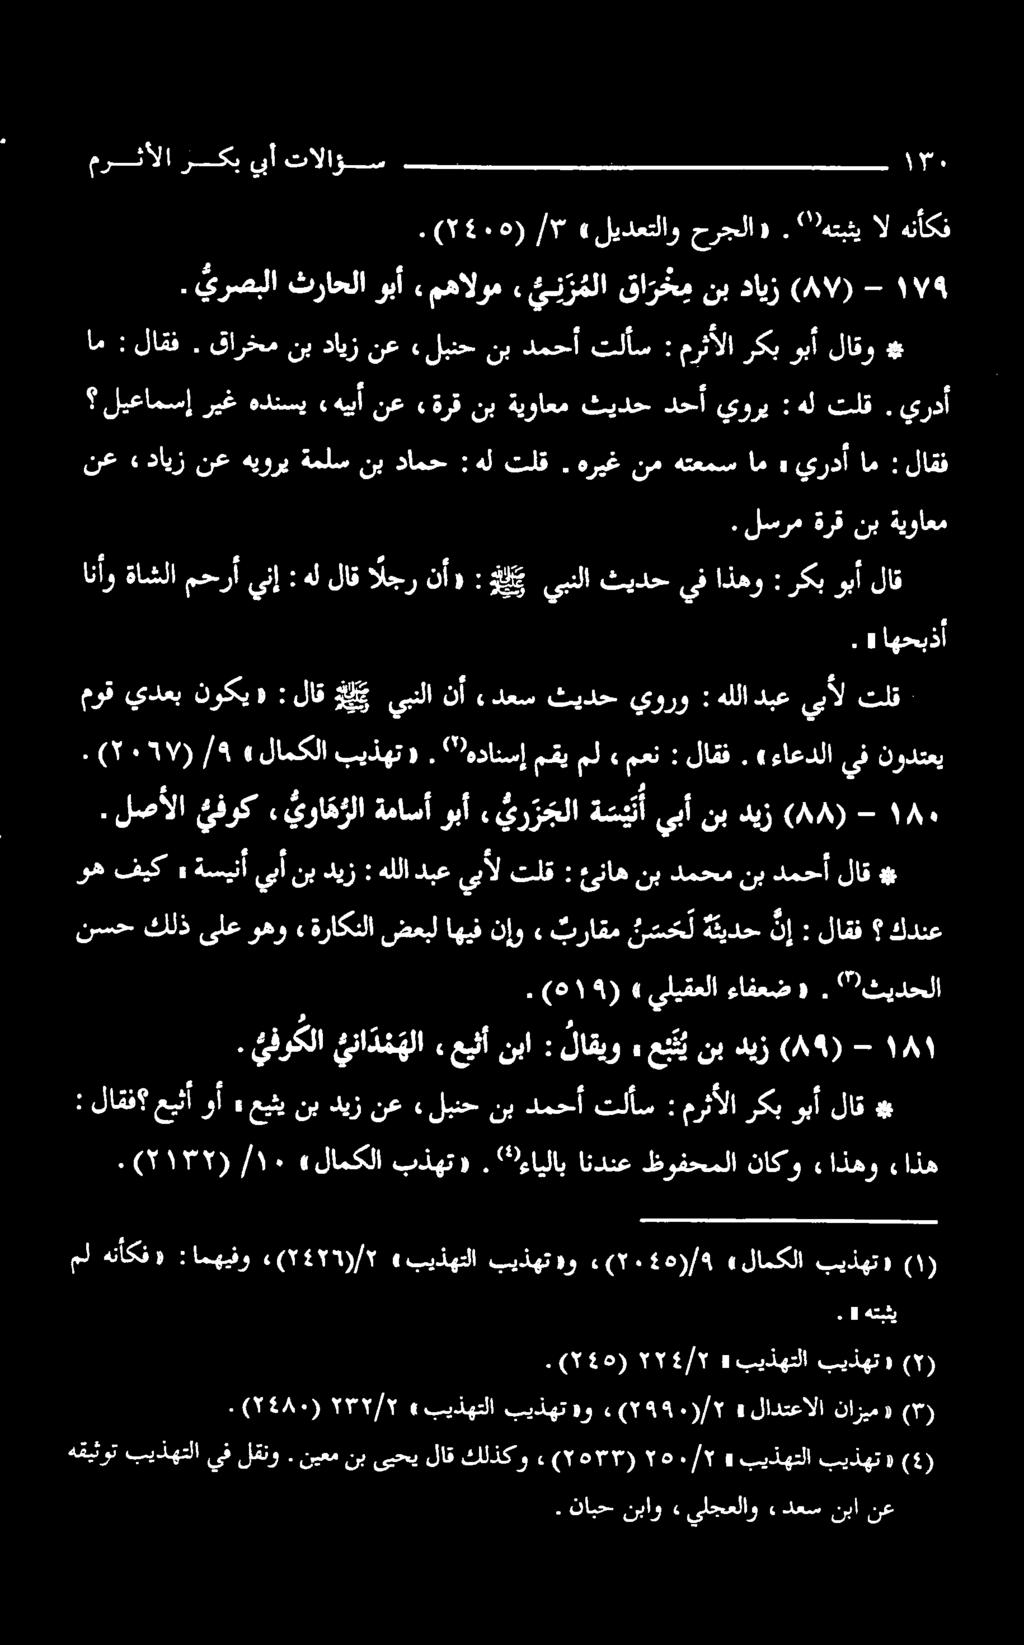 ١٣٠ ـــــــــــــــــــــــ ســـؤالات أبي بكـــر الأثـــرم
فكأنه لا يثبته(١). «الجرح والتعديل» ٣/ (٢٤٠٥).
١٧٩ - (٨٧) زياد بن مِخْرَاق المُزَنِيُّ، مولاهم، أبو الحارث البصريُّ.
* وقال أبو بكر الأثرم: سألت أحمد بن حنبل، عن زياد بن مخراق. فقال: ما
أدري. قلت له: يروي أحد حديث معاوية بن قرة، عن أبيه، يسنده غير إسماعيل؟
فقال: ما أدري، ما سمعته من غيره. قلت له: حماد بن سلمة يرويه عن زياد، عن
معاوية بن قرة مرسل.
قال أبو بكر: وهذا في حديث النبي ﷺ: «أن رجلًا قال له: إني أرحم الشاة وأنا
أذبحها».
قلت لأبي عبد الله: وروي حديث سعد، أن النبي ﷺ قال: «يكون بعدي قوم
يعتدون في الدعاء». فقال: نعم، لم يقم إسناده(٢). «تهذيب الكمال» ٩/ (٢٠٦٧).
١٨٠ - (٨٨) زيد بن أبي أُنَيْسَة الجَزَرِيُّ، أبو أسامة الرُّهَاوِيُّ، كوفيُّ الأصل.
* قال أحمد بن محمد بن هانئ: قلت لأبي عبد الله: زيد بن أبي أنيسة، كيف هو
عندك؟ فقال: إنَّ حديثَهُ لَحَسَنٌ مقاربٌ، وإن فيها لبعض النكارة، وهو على ذلك حسن
الحديث(٣). «ضعفاء العقيلي» (٥١٩).
١٨١ - (٨٩) زيد بن يُثَيْع، ويقالُ: ابن أثيع، الهَمْدَانيُّ الكُوفيُّ.
* قال أبو بكر الأثرم: سألت أحمد بن حنبل، عن زيد بن يثيع، أو أثيع؟ فقال:
هذا، وهذا، وكان المحفوظ عندنا بالياء(٤). «تهذب الكمال» ١٠/ (٢١٣٢).
(١) «تهذيب الكمال» ٩/(٢٠٤٥)، و«تهذيب التهذيب» ٢/(٢٤٢٦)، وفيهما: «فكأنه لم
يثبته».
(٢) «تهذيب التهذيب» ٢/٢٢٤ (٢٤٥).
(٣) «ميزان الاعتدال» ٢/(٢٩٩٠)، و«تهذيب التهذيب» ٢/٢٣٢ (٢٤٨٠).
(٤) «تهذيب التهذيب» ٢/٢٥٠ (٢٥٣٣)، وكذلك قال يحيى بن معين. ونقل في التهذيب توثيقه
عن ابن سعد، والعجلي، وابن حبان.